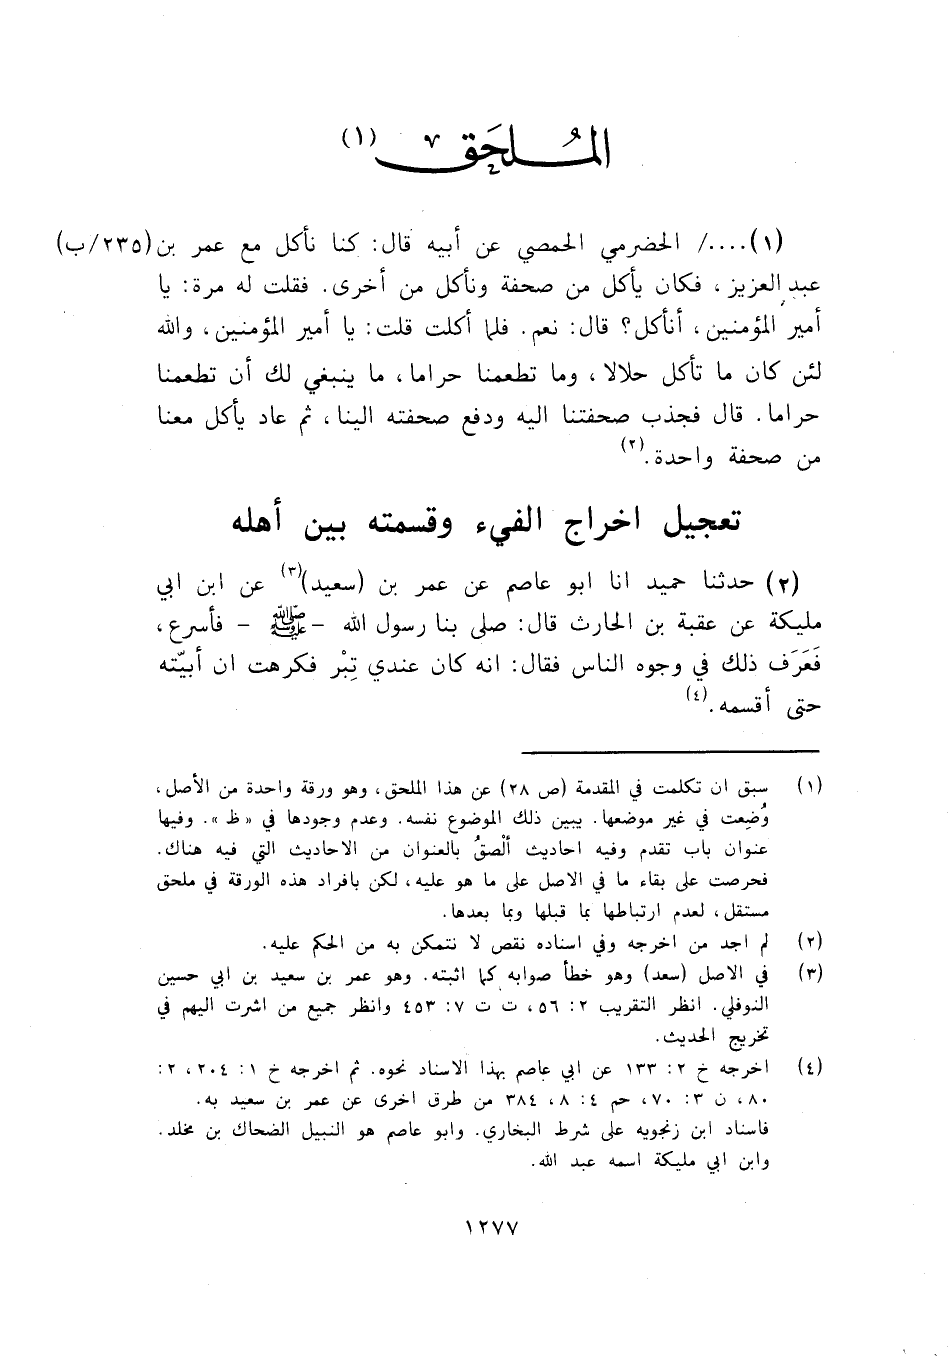 المُلحَق (١)
(١) ..../ الحضرمي الحمصي عن أبيه قال: كنا نأكل مع عمر بن (٢٣٥/ب)
عبد العزيز، فكان يأكل من صحفة ونأكل من أخرى. فقلت له مرة: يا
أمير المؤمنين، أنأكل؟ قال: نعم. فلما أكلت قلت: يا أمير المؤمنين، والله
لئن كان ما تأكل حلالا، وما تطعمنا حراما، ما ينبغي لك أن تطعمنا
حراما. قال فجذب صحفتنا اليه ودفع صحفته الينا، ثم عاد يأكل معنا
من صحفة واحدة.(٢)
تعجيل اخراج الفيء وقسمته بين أهله
(٢) حدثنا حميد انا ابو عاصم عن عمر بن (سعيد)(٣) عن ابن ابي
مليكة عن عقبة بن الحارث قال: صلى بنا رسول الله - ﷺ - فأسرع،
فَعَرَف ذلك في وجوه الناس فقال: انه كان عندي تِبْر فكرهت ان أبيّته
حتى أقسمه.(٤)
(١) سبق ان تكلمت في المقدمة (ص ٢٨) عن هذا الملحق، وهو ورقة واحدة من الأصل،
وُضِعت في غير موضعها. يبين ذلك الموضوع نفسه. وعدم وجودها في «ظ». وفيها
عنوان باب تقدم وفيه احاديث ألْصقُ بالعنوان من الاحاديث التي فيه هناك.
فحرصت على بقاء ما في الاصل على ما هو عليه، لكن بافراد هذه الورقة في ملحق
مستقل، لعدم ارتباطها بما قبلها وبما بعدها.
(٢) لم اجد من اخرجه وفي اسناده نقص لا نتمكن به من الحكم عليه.
(٣) في الاصل (سعد) وهو خطأ صوابه كما اثبته. وهو عمر بن سعيد بن ابي حسين
النوفلي. انظر التقريب ٢: ٥٦، ت ت ٧: ٤٥٣ وانظر جميع من اشرت اليهم في
تخريج الحديث.
(٤) اخرجه خ ٢: ١٣٣ عن ابي عاصم بهذا الاسناد نحوه. ثم اخرجه خ ١: ٢٠٤، ٢:
٨٠، ن ٣: ٧٠، حم ٤: ٨، ٣٨٤ من طرق اخرى عن عمر بن سعيد به.
فاسناد ابن زنجويه على شرط البخاري. وابو عاصم هو النبيل الضحاك بن مخلد.
وابن ابي مليكة اسمه عبد الله.
١٢٧٧